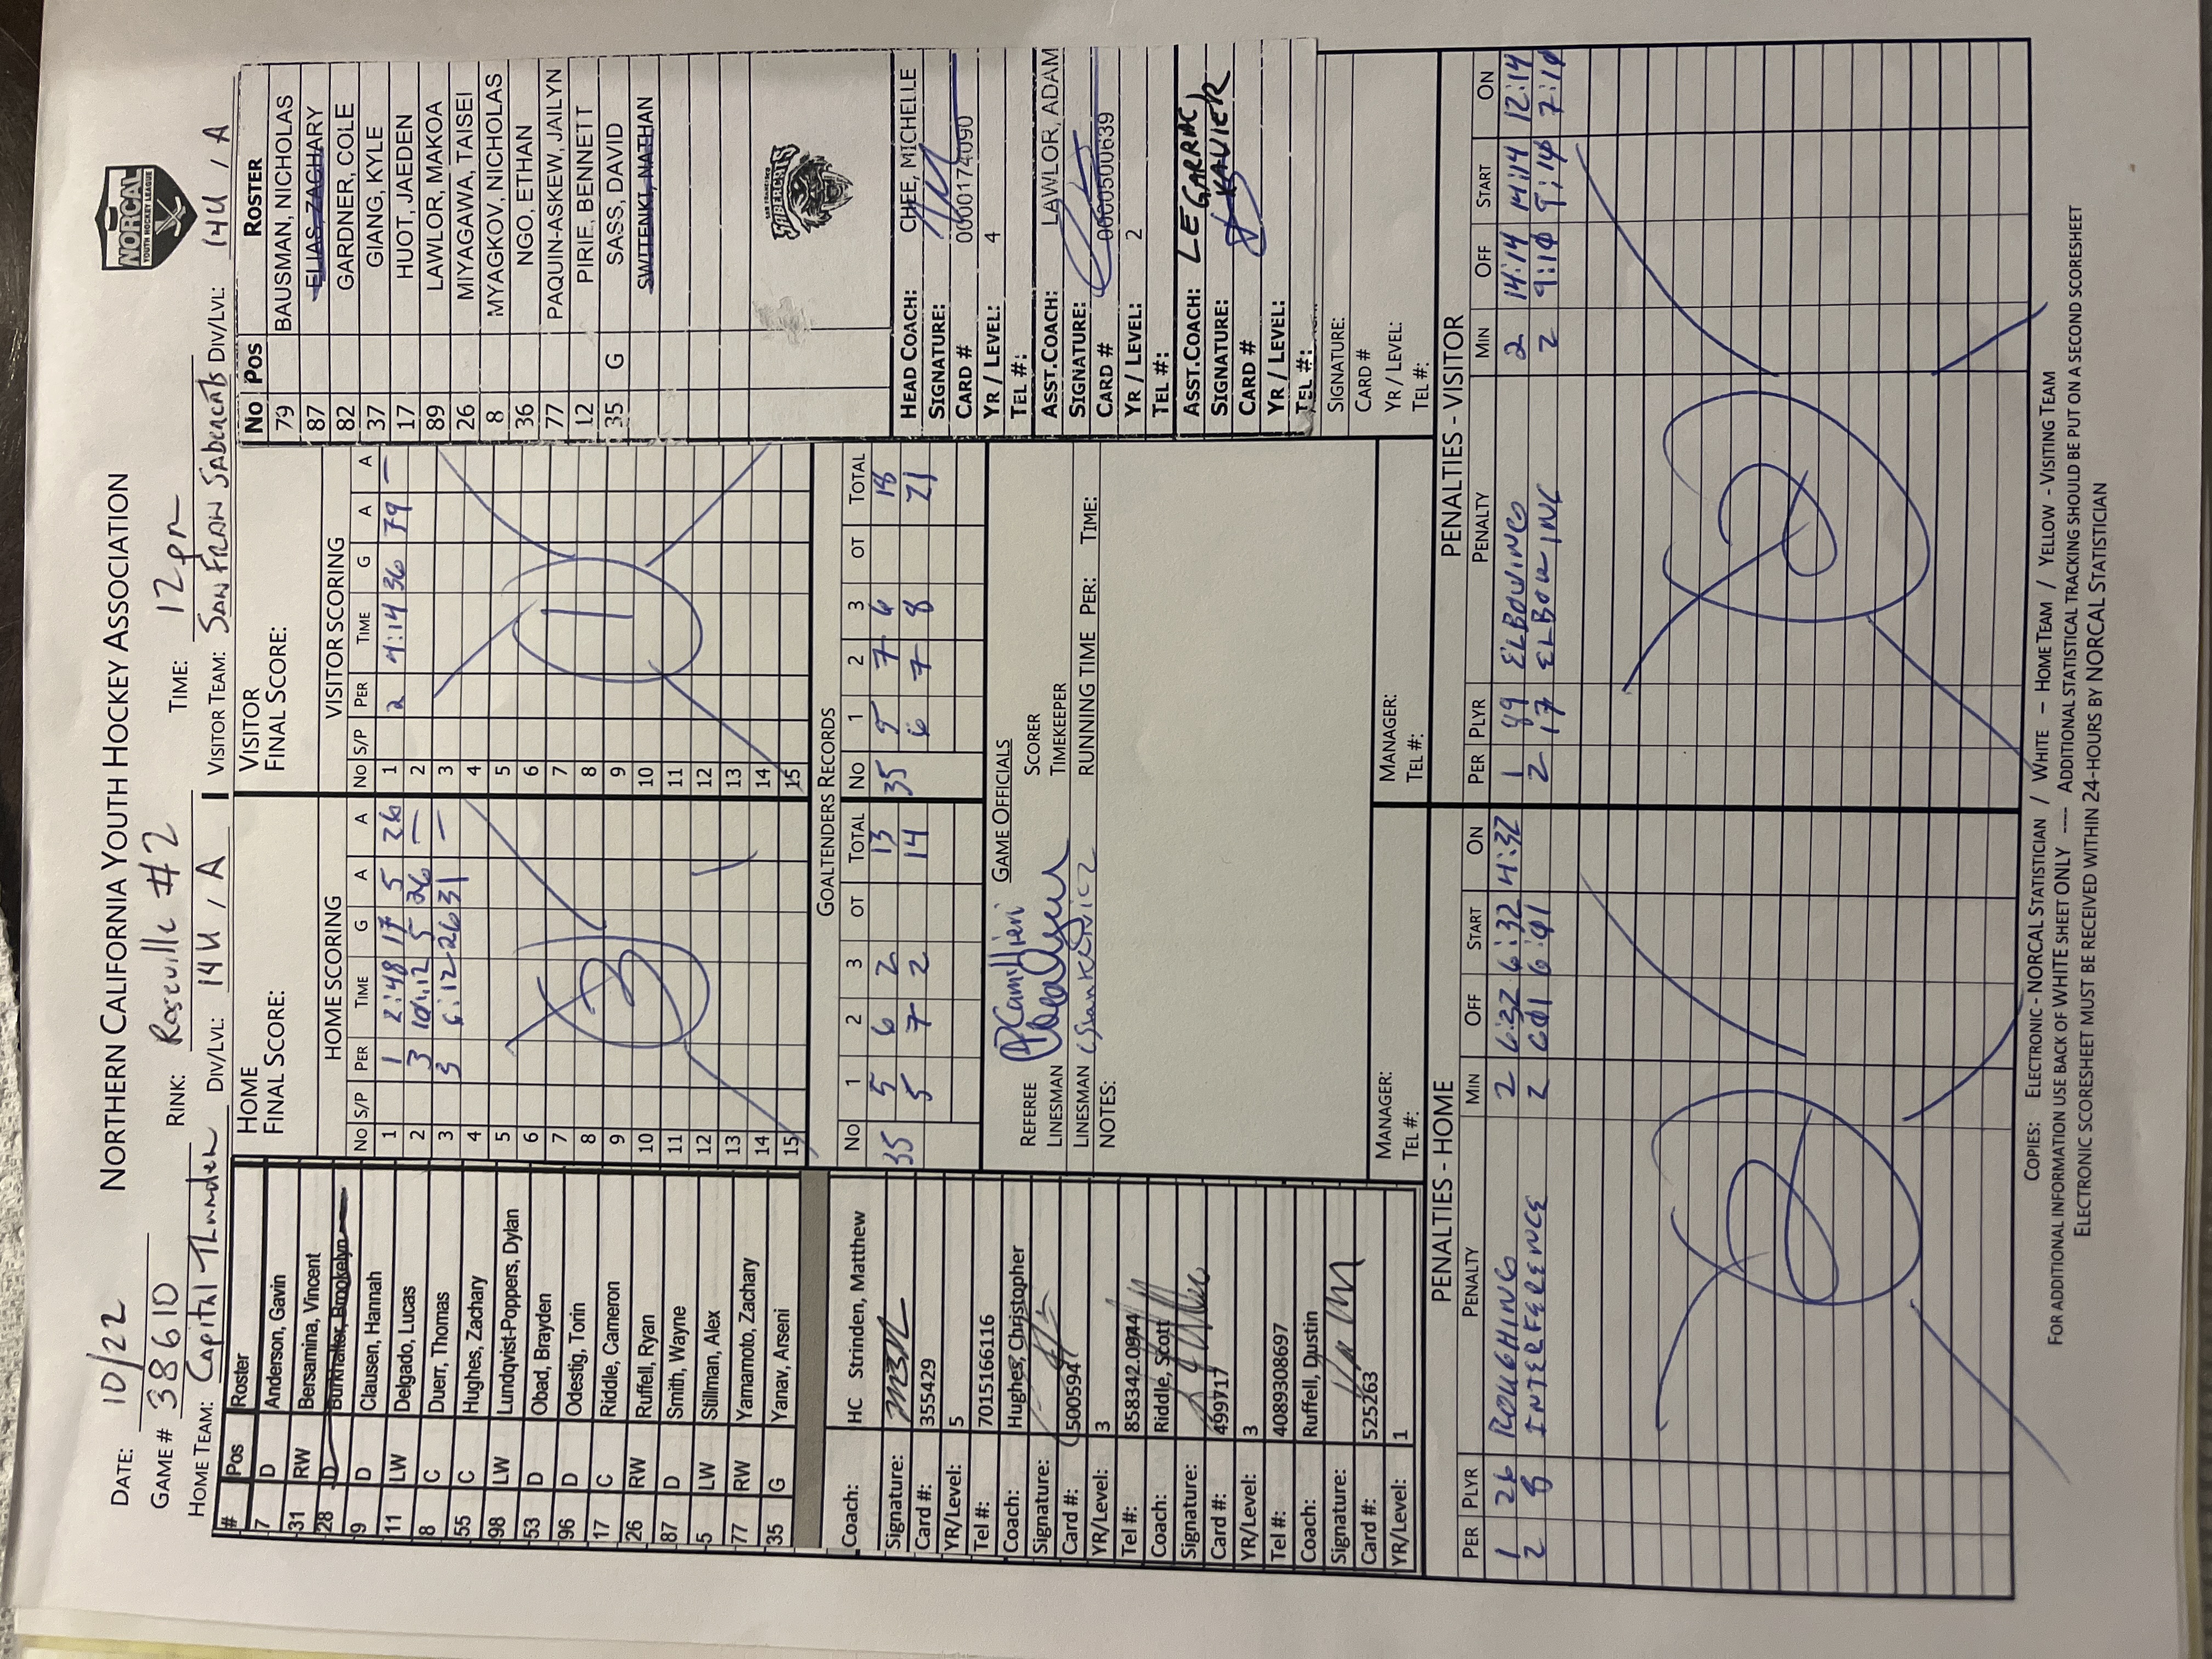 DATE: 10/22 NORTHERN CALIFORNIA YOUTH HOCKEY ASSOCIATION
NORCAL
YOUTH HOCKEY LEAGUE
GAME # 38610 RINK: Roseville #2 TIME: 12pm
HOME TEAM: Capital Thunder DIV/LVL: 14U / A VISITOR TEAM: San Fran Sabercats DIV/LVL: 14U / A
# Pos Roster
7 D Anderson, Gavin
31 RW Bersamina, Vincent
28 D Burkhalter, Brookelyn
9 D Clausen, Hannah
11 LW Delgado, Lucas
8 C Duerr, Thomas
55 C Hughes, Zachary
98 LW Lundqvist-Poppers, Dylan
53 D Obad, Brayden
96 D Odestig, Torin
17 C Riddle, Cameron
26 RW Ruffell, Ryan
87 D Smith, Wayne
5 LW Stillman, Alex
77 RW Yamamoto, Zachary
35 G Yanav, Arseni
Coach: HC Strinden, Matthew
Signature:
Card #: 355429
YR/Level: 5
Tel #: 7015166116
Coach: Hughes, Christopher
Signature:
Card #: 500594
YR/Level: 3
Tel #: 858342.0944
Coach: Riddle, Scott
Signature:
Card #: 499717
YR/Level: 3
Tel #: 4089308697
Coach: Ruffell, Dustin
Signature:
Card #: 525263
YR/Level: 1
HOME
FINAL SCORE:
HOME SCORING
NO S/P PER TIME G A A
1 1 2:48 17 5 26
2 3 10:12 5 26 —
3 3 6:12 26 31 —
4
5
6
7
8
9
10
11
12
13
14
15
3
VISITOR
FINAL SCORE:
VISITOR SCORING
NO S/P PER TIME G A A
1 2 4:14 36 79 —
2
3
4
5
6
7
8
9
10
11
12
13
14
15
1
GOALTENDERS RECORDS
NO 1 2 3 OT TOTAL NO 1 2 3 OT TOTAL
35 5 6 2 13 35 5 7 6 18
5 7 2 14 6 7 8 21
GAME OFFICIALS
REFEREE SCORER
LINESMAN TIMEKEEPER
LINESMAN RUNNING TIME PER: TIME:
NOTES:
MANAGER: MANAGER:
TEL #: TEL #:
No Pos Roster
79 BAUSMAN, NICHOLAS
87 ELIAS, ZACHARY
82 GARDNER, COLE
37 GIANG, KYLE
17 HUOT, JAEDEN
89 LAWLOR, MAKOA
26 MIYAGAWA, TAISEI
8 MYAGKOV, NICHOLAS
36 NGO, ETHAN
77 PAQUIN-ASKEW, JAILYN
12 PIRIE, BENNETT
35 G SASS, DAVID
SWITENKI, NATHAN
SAN FRANCISCO
SABERCATS
HEAD COACH: CHEE, MICHELLE
SIGNATURE:
CARD # 0000174090
YR / LEVEL: 4
TEL #:
ASST.COACH: LAWLOR, ADAM
SIGNATURE:
CARD # 0000500639
YR / LEVEL: 2
TEL #:
ASST.COACH: LEGARREC
SIGNATURE: XAVIER
CARD #
YR / LEVEL:
TEL #:
SIGNATURE:
CARD #
YR / LEVEL:
TEL #:
PENALTIES - HOME
PER PLYR PENALTY MIN OFF START ON
1 26 ROUGHING 2 6:32 6:32 4:32
2 8 INTERFERENCE 2
PENALTIES - VISITOR
PER PLYR PENALTY MIN OFF START ON
1 89 ELBOWING 2 14:14 14:14 12:14
2 17 ELBOWING 2 9:10 9:10 7:10
2
COPIES: ELECTRONIC - NORCAL STATISTICIAN / WHITE – HOME TEAM / YELLOW - VISITING TEAM
FOR ADDITIONAL INFORMATION USE BACK OF WHITE SHEET ONLY ---- ADDITIONAL STATISTICAL TRACKING SHOULD BE PUT ON A SECOND SCORESHEET
ELECTRONIC SCORESHEET MUST BE RECEIVED WITHIN 24-HOURS BY NORCAL STATISTICIAN